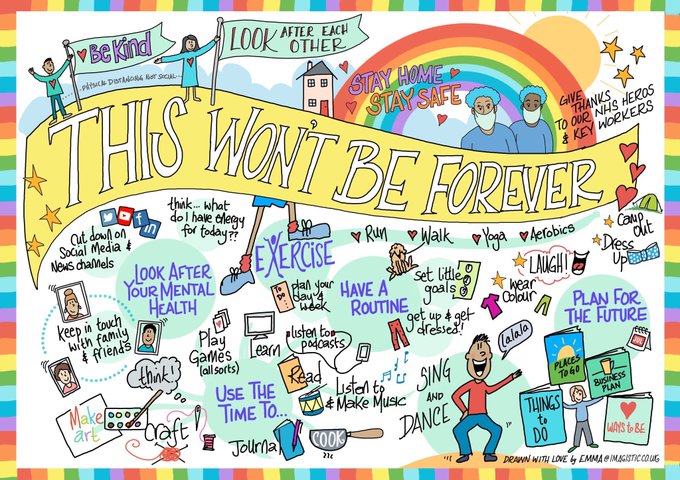 Be Kind
LOOK AFTER EACH
OTHER
....PHYSICAL DISTANCING NOT SOCIAL....
STAY HOME
STAY SAFE
GIVE
THANKS
TO OUR NHS HEROS
& KEY WORKERS
THIS WON'T BE FOREVER
Cut down on
Social Media &
News channels
think... what
do I have energy
for today??
EXERCISE
Run
Walk
Yoga
Aerobics
Camp
out
Dress
Up
LAUGH!
wear
Colour
LOOK AFTER
YOUR MENTAL
HEALTH
plan your
day &
week
HAVE A
ROUTINE
set little
goals
get up & get
dressed!
PLAN FOR
THE FUTURE
keep in touch
with family
& friends
Play
Games
(all sorts)
Learn
listen to
podcasts
think!
Read
Listen to
& Make Music
USE THE
TIME TO...
Make
art
Craft
Journal
COOK
SING
AND
DANCE
lalala
PLACES
TO GO
BUSINESS
PLAN
THINGS
to
DO
WAYS to BE
DRAWN WITH LOVE by EMMA@IMAGISTIC.CO.UG